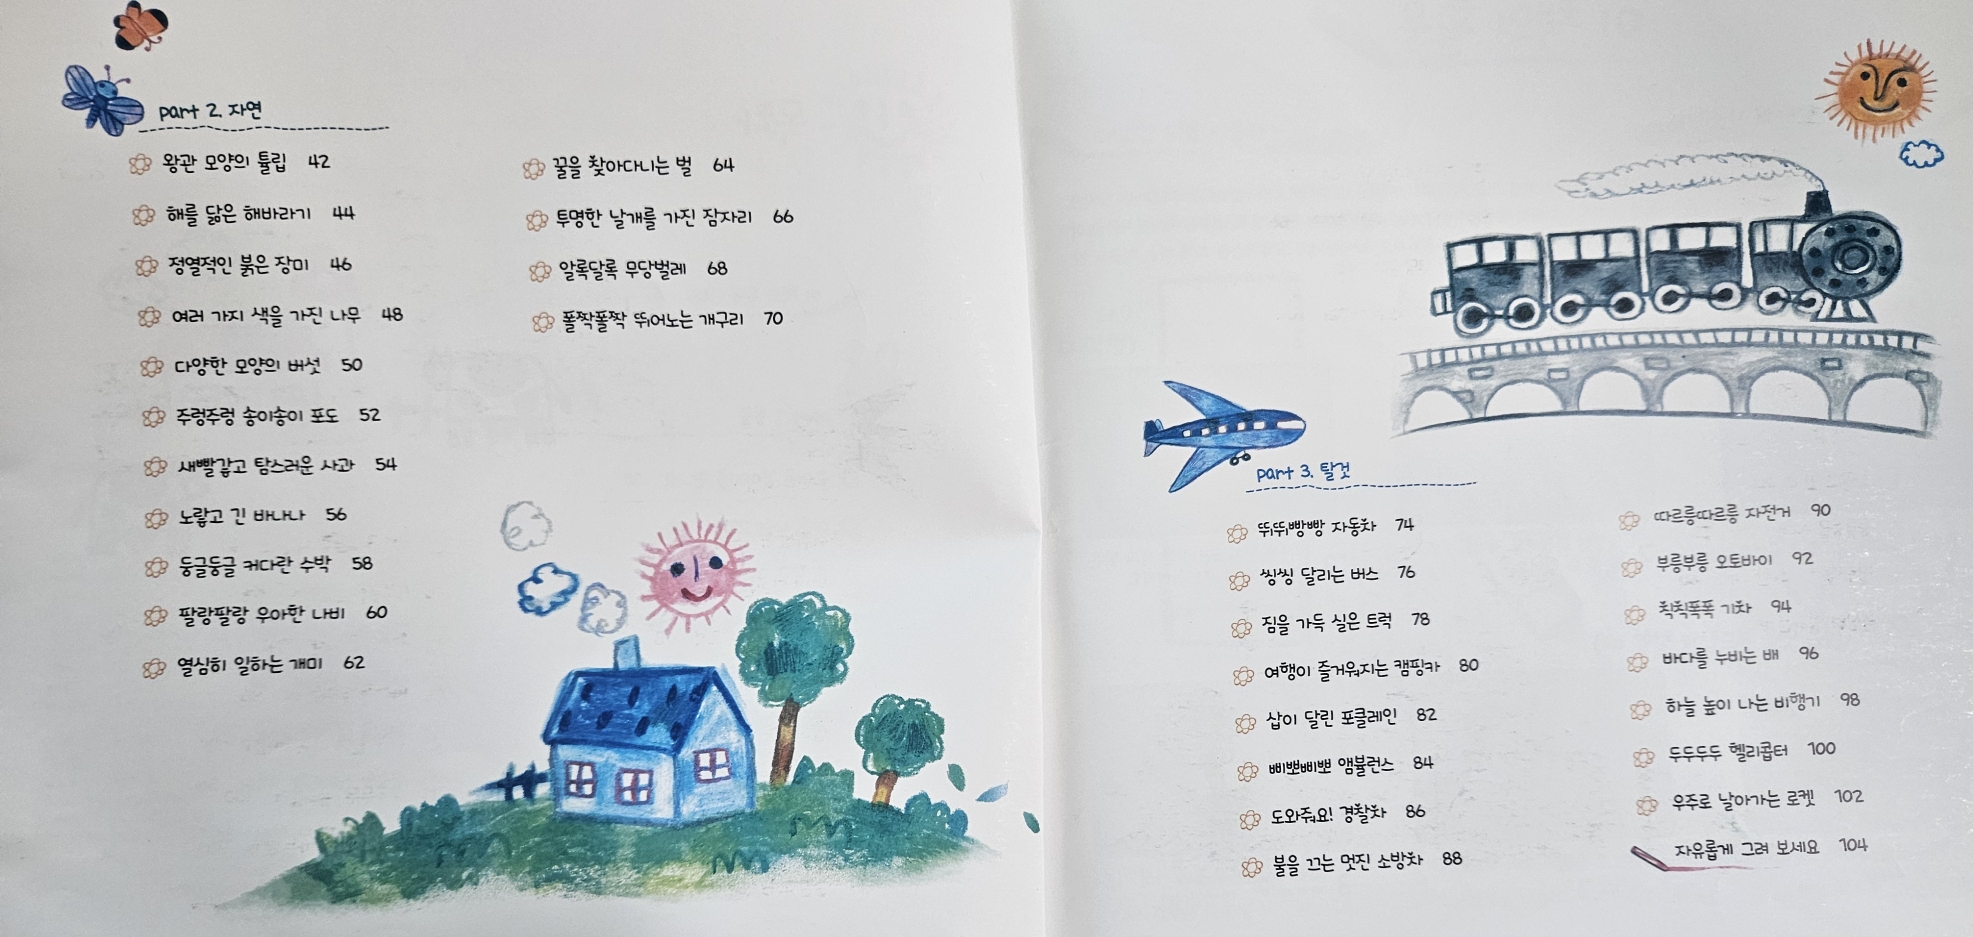 part 2. 자연
왕관 모양의 튤립 42
해를 닮은 해바라기 44
정열적인 붉은 장미 46
여러 가지 색을 가진 나무 48
다양한 모양의 버섯 50
주렁주렁 송이송이 포도 52
새빨갛고 탐스러운 사과 54
노랗고 긴 바나나 56
둥글둥글 커다란 수박 58
팔랑팔랑 우아한 나비 60
열심히 일하는 개미 62
꿀을 찾아다니는 벌 64
투명한 날개를 가진 잠자리 66
알록달록 무당벌레 68
폴짝폴짝 뛰어노는 개구리 70
part 3. 탈것
뛰뛰빵빵 자동차 74
씽씽 달리는 버스 76
짐을 가득 실은 트럭 78
여행이 즐거워지는 캠핑카 80
삽이 달린 포클레인 82
삐뽀삐뽀 앰뷸런스 84
도와줘요! 경찰차 86
불을 끄는 멋진 소방차 88
따르릉따르릉 자전거 90
부릉부릉 오토바이 92
칙칙폭폭 기차 94
바다를 누비는 배 96
하늘 높이 나는 비행기 98
두두두두 헬리콥터 100
우주로 날아가는 로켓 102
자유롭게 그려 보세요 104